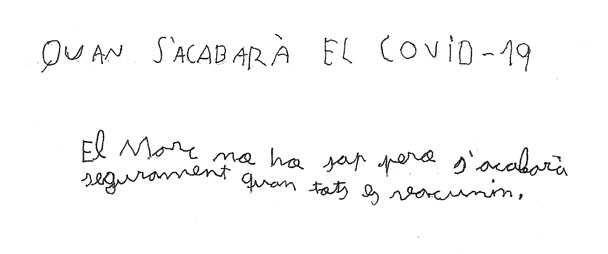 QUAN S'ACABARÀ EL COVID-19
El Marc no ho sap pero s'acabarà
segurament quan tots es vacunin.